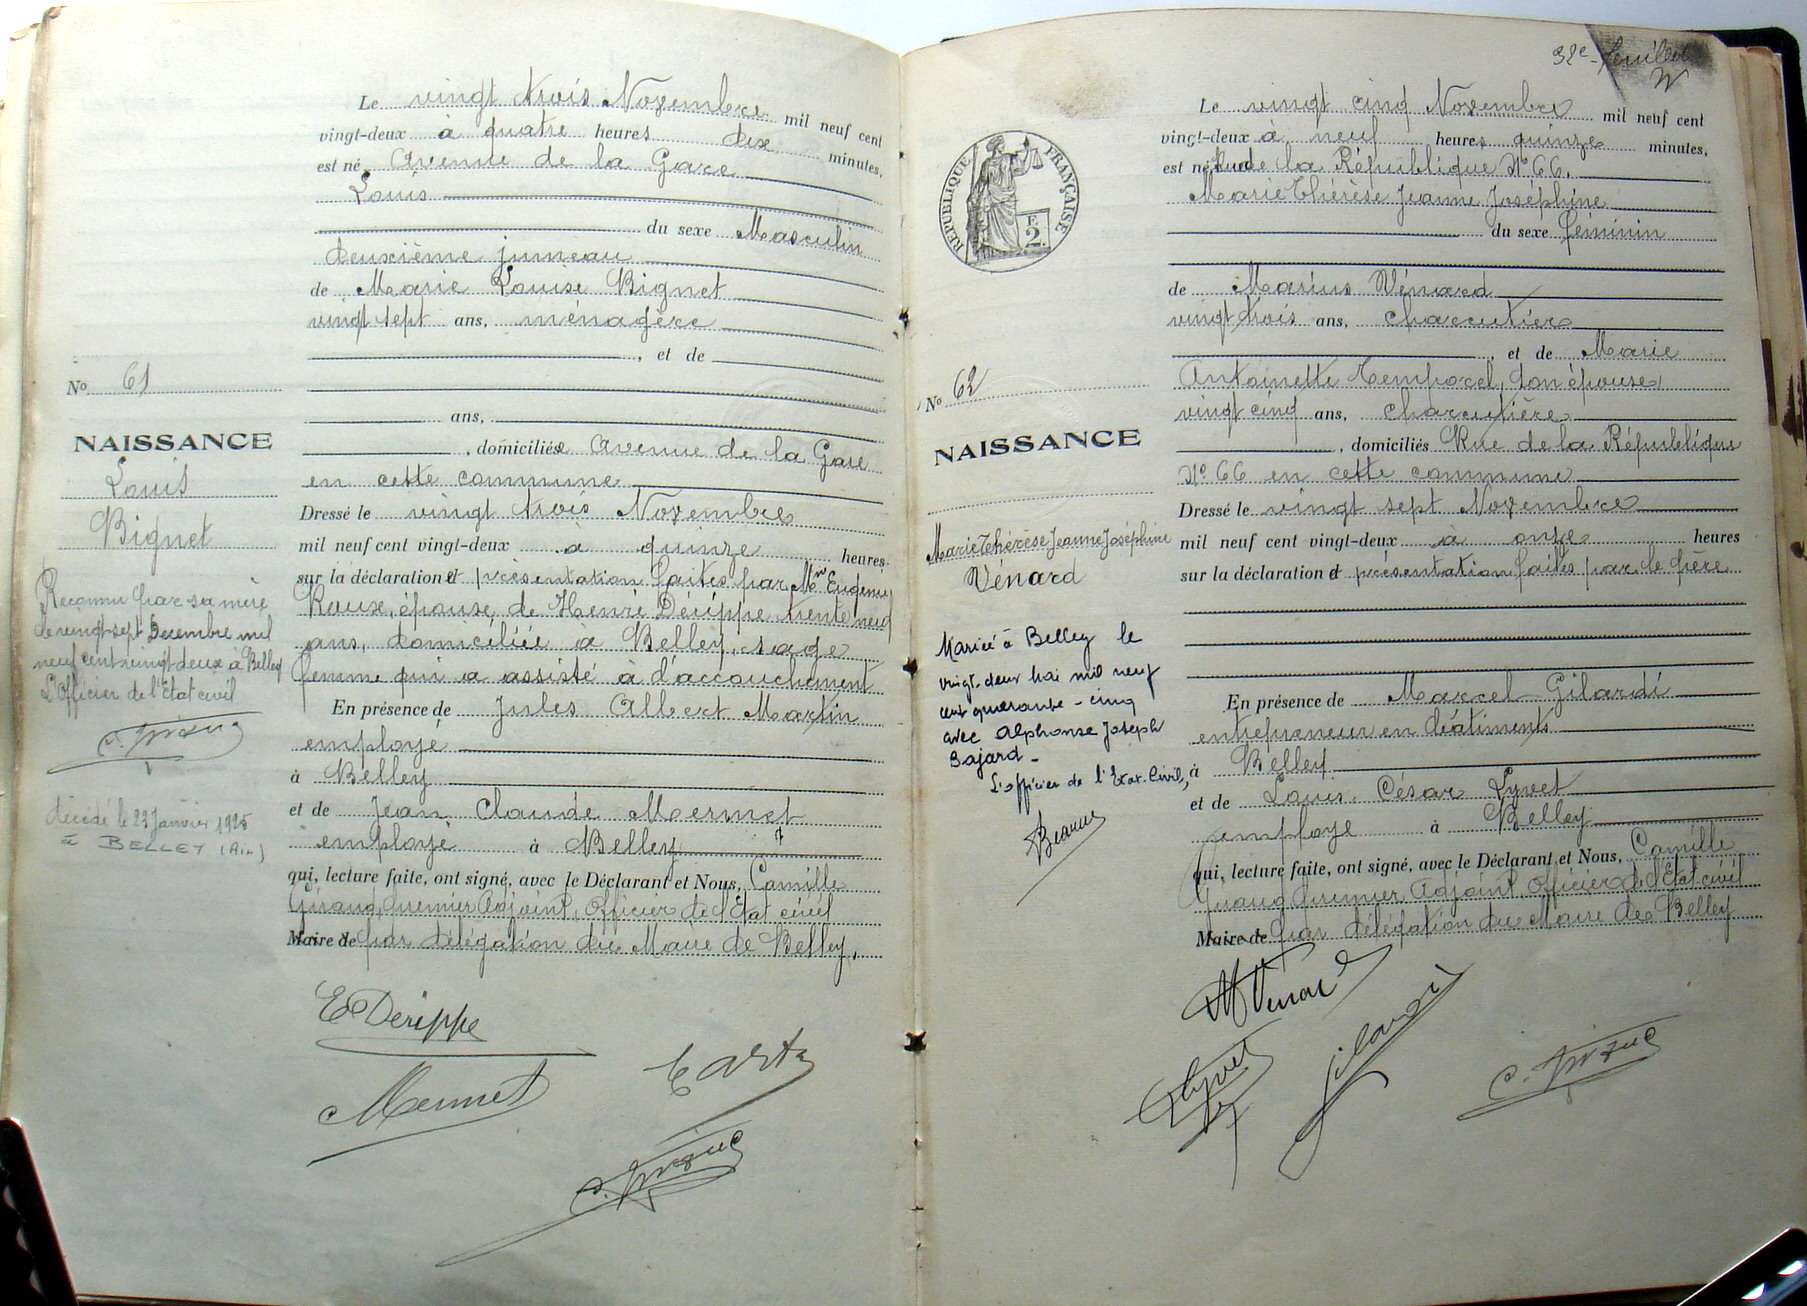 Le vingt trois Novembre mil neuf cent
vingt-deux à quatre heures dix minutes,
est né Avenue de la Gare
Louis
du sexe Masculin
deuxième jumeau
de Marie Louise Bignet
vingt sept ans, ménagère
, et de
ans,
, domiciliée Avenue de la Gare
en cette commune
Dressé le vingt trois Novembre
mil neuf cent vingt-deux à quinze heures
sur la déclaration et présentation faites par Mme Eugénie
Roux, épouse de Henri Dérippe trente neuf
ans, domiciliée à Belley, sage
femme qui a assisté à l'accouchement
En présence de Jules Albert Martin
employé
à Belley
et de Jean Claude Mermet
employé à Belley
qui, lecture faite, ont signé, avec le Déclarant et Nous, Camille
Giraud, premier Adjoint, Officier de l'Etat civil
Maire de par délégation du Maire de Belley,
No 61
NAISSANCE
Louis
Bignet
Reconnu par sa mère
le vingt-sept Décembre mil
neuf cent vingt deux à Belley
L'Officier de l'Etat civil
décédé le 23 Janvier 1925
à BELLEY (Ain)
E Derippe
Mermet
32e feuillet
REPUBLIQUE FRANÇAISE
F.
2
Le vingt cinq Novembre mil neuf cent
vingt-deux à neuf heures quinze minutes,
est né Rue de la République No 66.
Marie Thérèse Jeanne Joséphine
du sexe féminin
de Marius Vénard
vingt trois ans, charcutier
, et de Marie
Antoinette Temporel, son épouse
vingt cinq ans, charcutière
, domiciliés Rue de la République
No 66 en cette commune
Dressé le vingt sept Novembre
mil neuf cent vingt-deux à onze heures
sur la déclaration et présentation faites par le père
En présence de Marcel Gilardi
entrepreneur en bâtiments
à Belley
et de Louis César Lyvet
employé à Belley
qui, lecture faite, ont signé, avec le Déclarant et Nous, Camille
Giraud premier Adjoint, Officier de l'Etat civil
Maire de par délégation du Maire de Belley
No 62
NAISSANCE
Marie Thérèse Jeanne Joséphine
Vénard
Mariée à Belley le
vingt-deux Mai mil neuf
cent quarante-cinq
avec Alphonse Joseph
Sajard -
L'officier de l'Etat-Civil,
M Venard
Lyvet
Gilardi